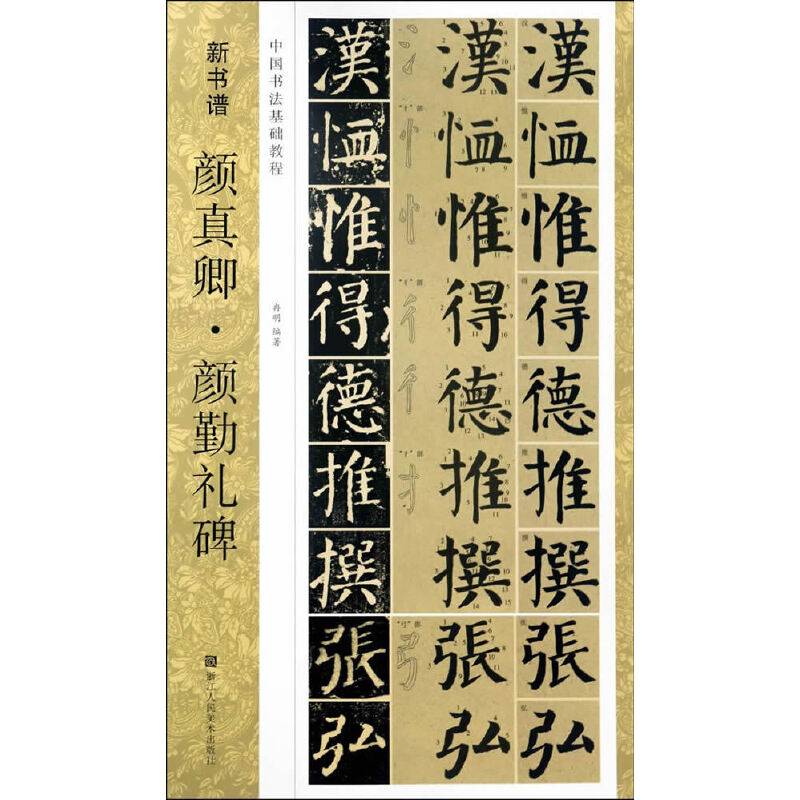 新书谱
颜真卿·颜勤礼碑
浙江人民美术出版社
中国书法基础教程
冉明 编著
漢 漢 漢
恤 恤 恤
惟 惟 惟
得 得 得
德 德 德
推 推 推
撰 撰 撰
張 張 張
弘 弘 弘